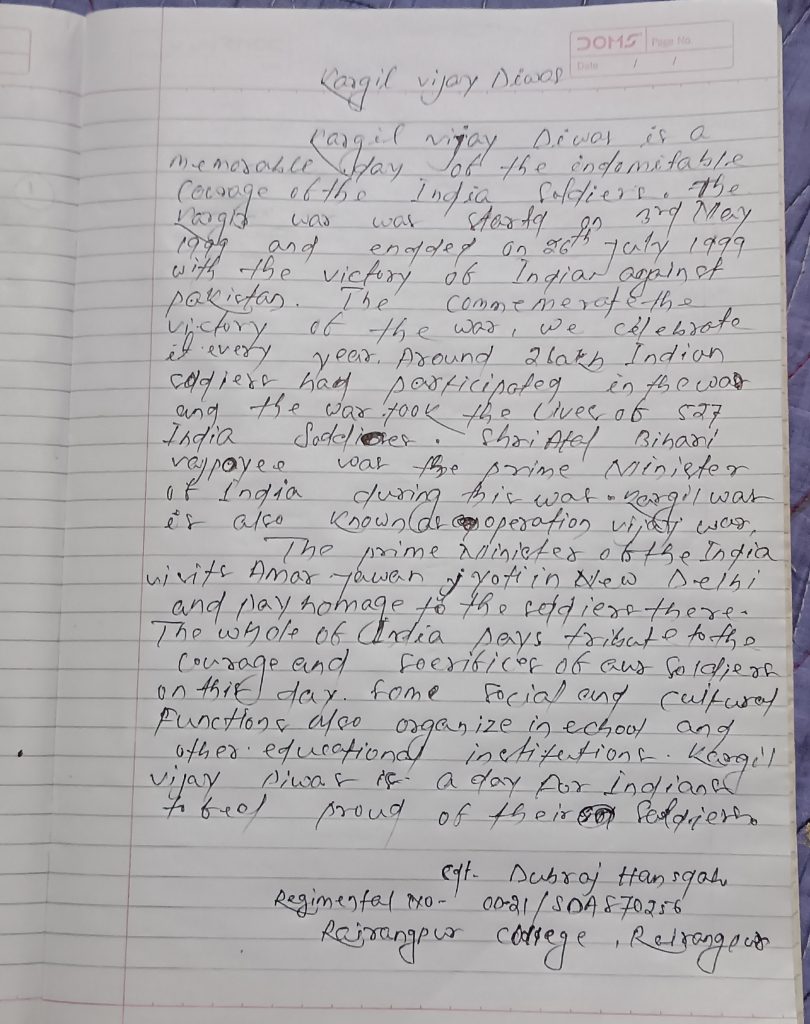 DOMS Page No.
Date / /
Kargil vijay Diwas
Kargil vijay Diwas is a
memorable day of the indomitable
Courage of the India Soldiers. The
Kargil war was startd on 3rd May
1999 and endded on 26th July 1999
with the victory of Indian against
pakistan. The commemerate the
victory of the war, we celebrate
it every year. Around 2lakh Indian
soldiers had participated in the war
and the war took the lives of 527
India Soddiers. Shri Atal Bihari
vajpayee was the prime Minister
of India during this war. Kargil war
is also known as operation vijay war.
The prime Minister of the India
visits Amar Jawan jyoti in New Delhi
and pay homage to the soldiers there.
The whole of India pays tribute to the
courage and sacrifices of our soldiers
on this day. Some social and cultural
Functions also organize in school and
other educational institutions. Kargil
vijay Diwas is a day for Indians
to feel proud of their soldiers.
Cdt. Dubraj Hansdah
Regimental No- OD21/SDA870256
Rairangpur College, Rairangpur